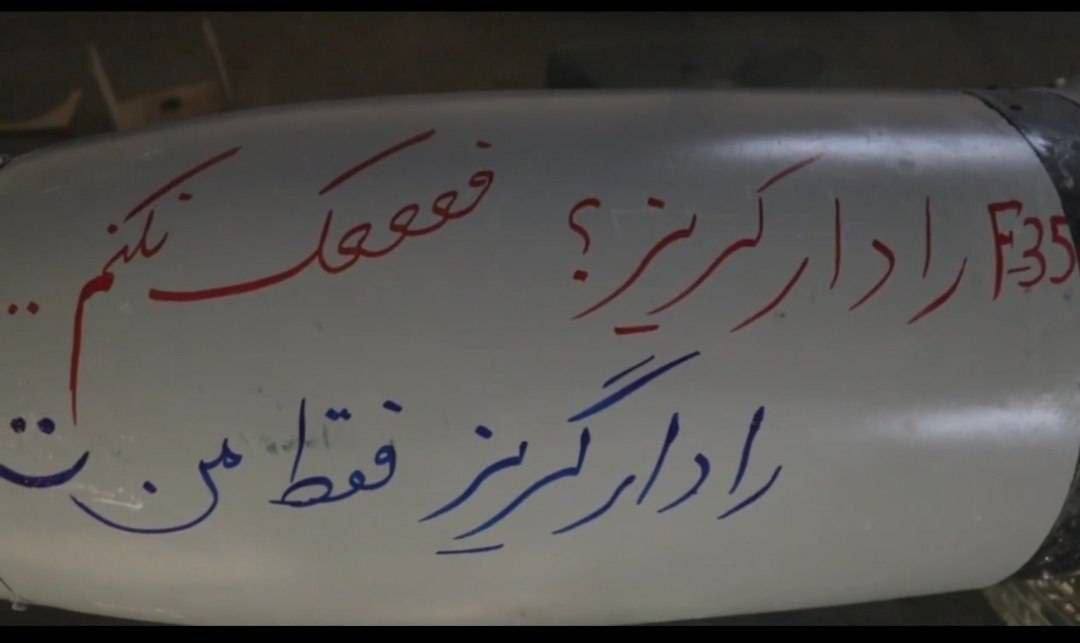 F-35 رادار کریز؟ فعععک نکنم ..
رادار گریز فقط من